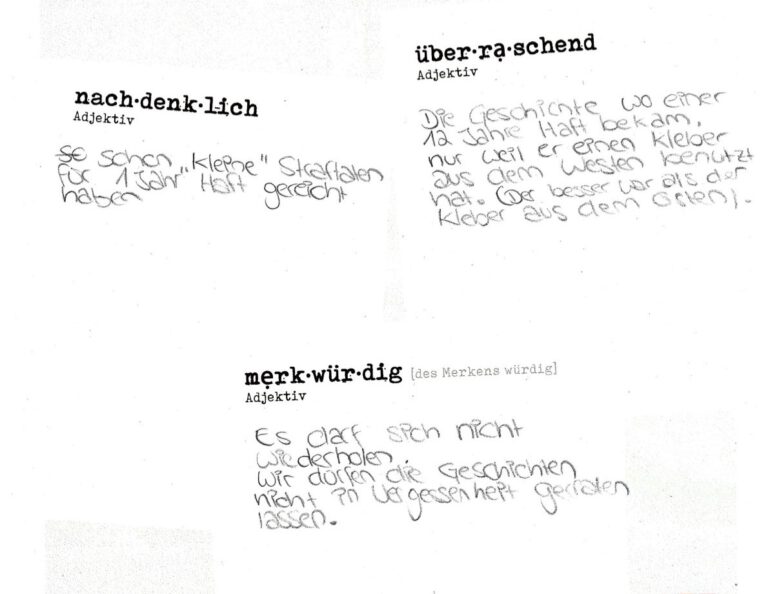 nach·denk·lich
Adjektiv
so schon „kleine" Straftaten
für 1 Jahr Haft gereicht
haben
über·rạ·schend
Adjektiv
Die Geschichte wo einer
12 Jahre Haft bekam,
nur weil er einen Kleber
aus dem Westen benutzt
hat. (Der besser war als der
Kleber aus dem Osten).
mẹrk·wür·dig [des Merkens würdig]
Adjektiv
Es darf sich nicht
wiederholen.
wir dürfen die Geschichten
nicht in Vergessenheit gerraten
lassen.